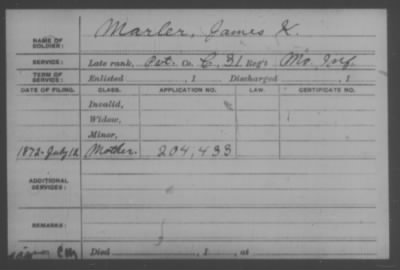 Marler, James K.
NAME OF SOLDIER:
SERVICE: Late rank, Pvt. Co. C, 31 Reg't Mo. Inf.
TERM OF SERVICE: Enlisted , 1 Discharged , 1
DATE OF FILING. CLASS. APPLICATION NO. LAW. CERTIFICATE NO.
Invalid,
Widow,
Minor,
1872-July 12 Mother. 204,433
ADDITIONAL SERVICES:
REMARKS:
Died , 1 , at